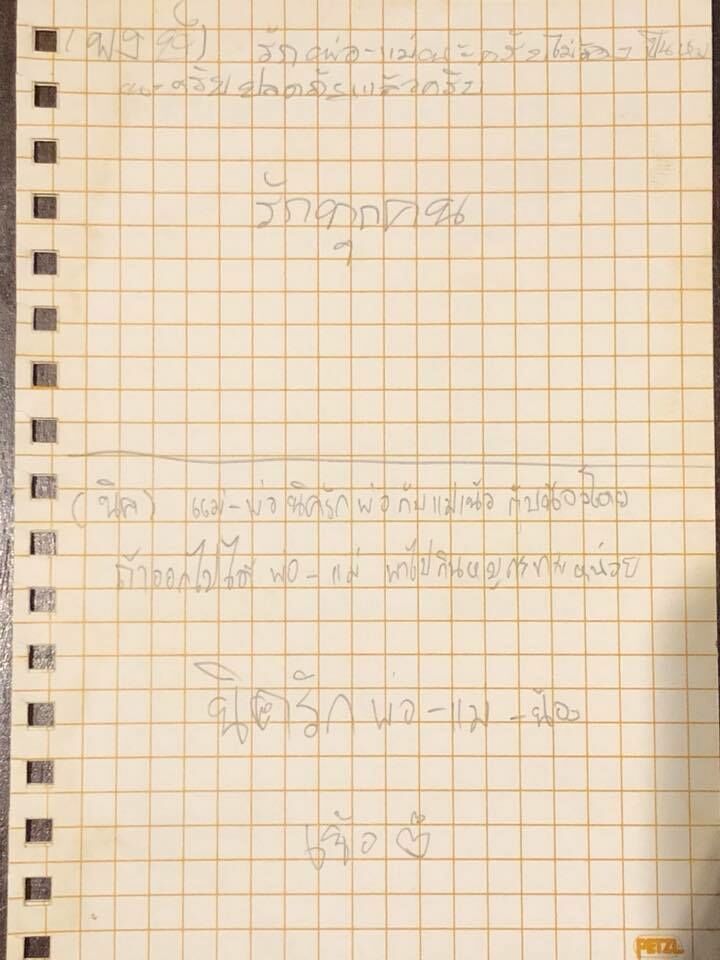 รักพ่อ-แม่นะครับไม่ต้อง เป็นห่วง
นะครับ ปลอดภัยแล้วครับ
รักทุกคน
(นิค) แม่-พ่อ นิครักพ่อกับแม่ กับน้อง
ถ้าออกไปได้ พ่อ-แม่ พาไปกินหมูกระทะหน่อย
นิครัก พ่อ-แม่-น้อง
PETZL